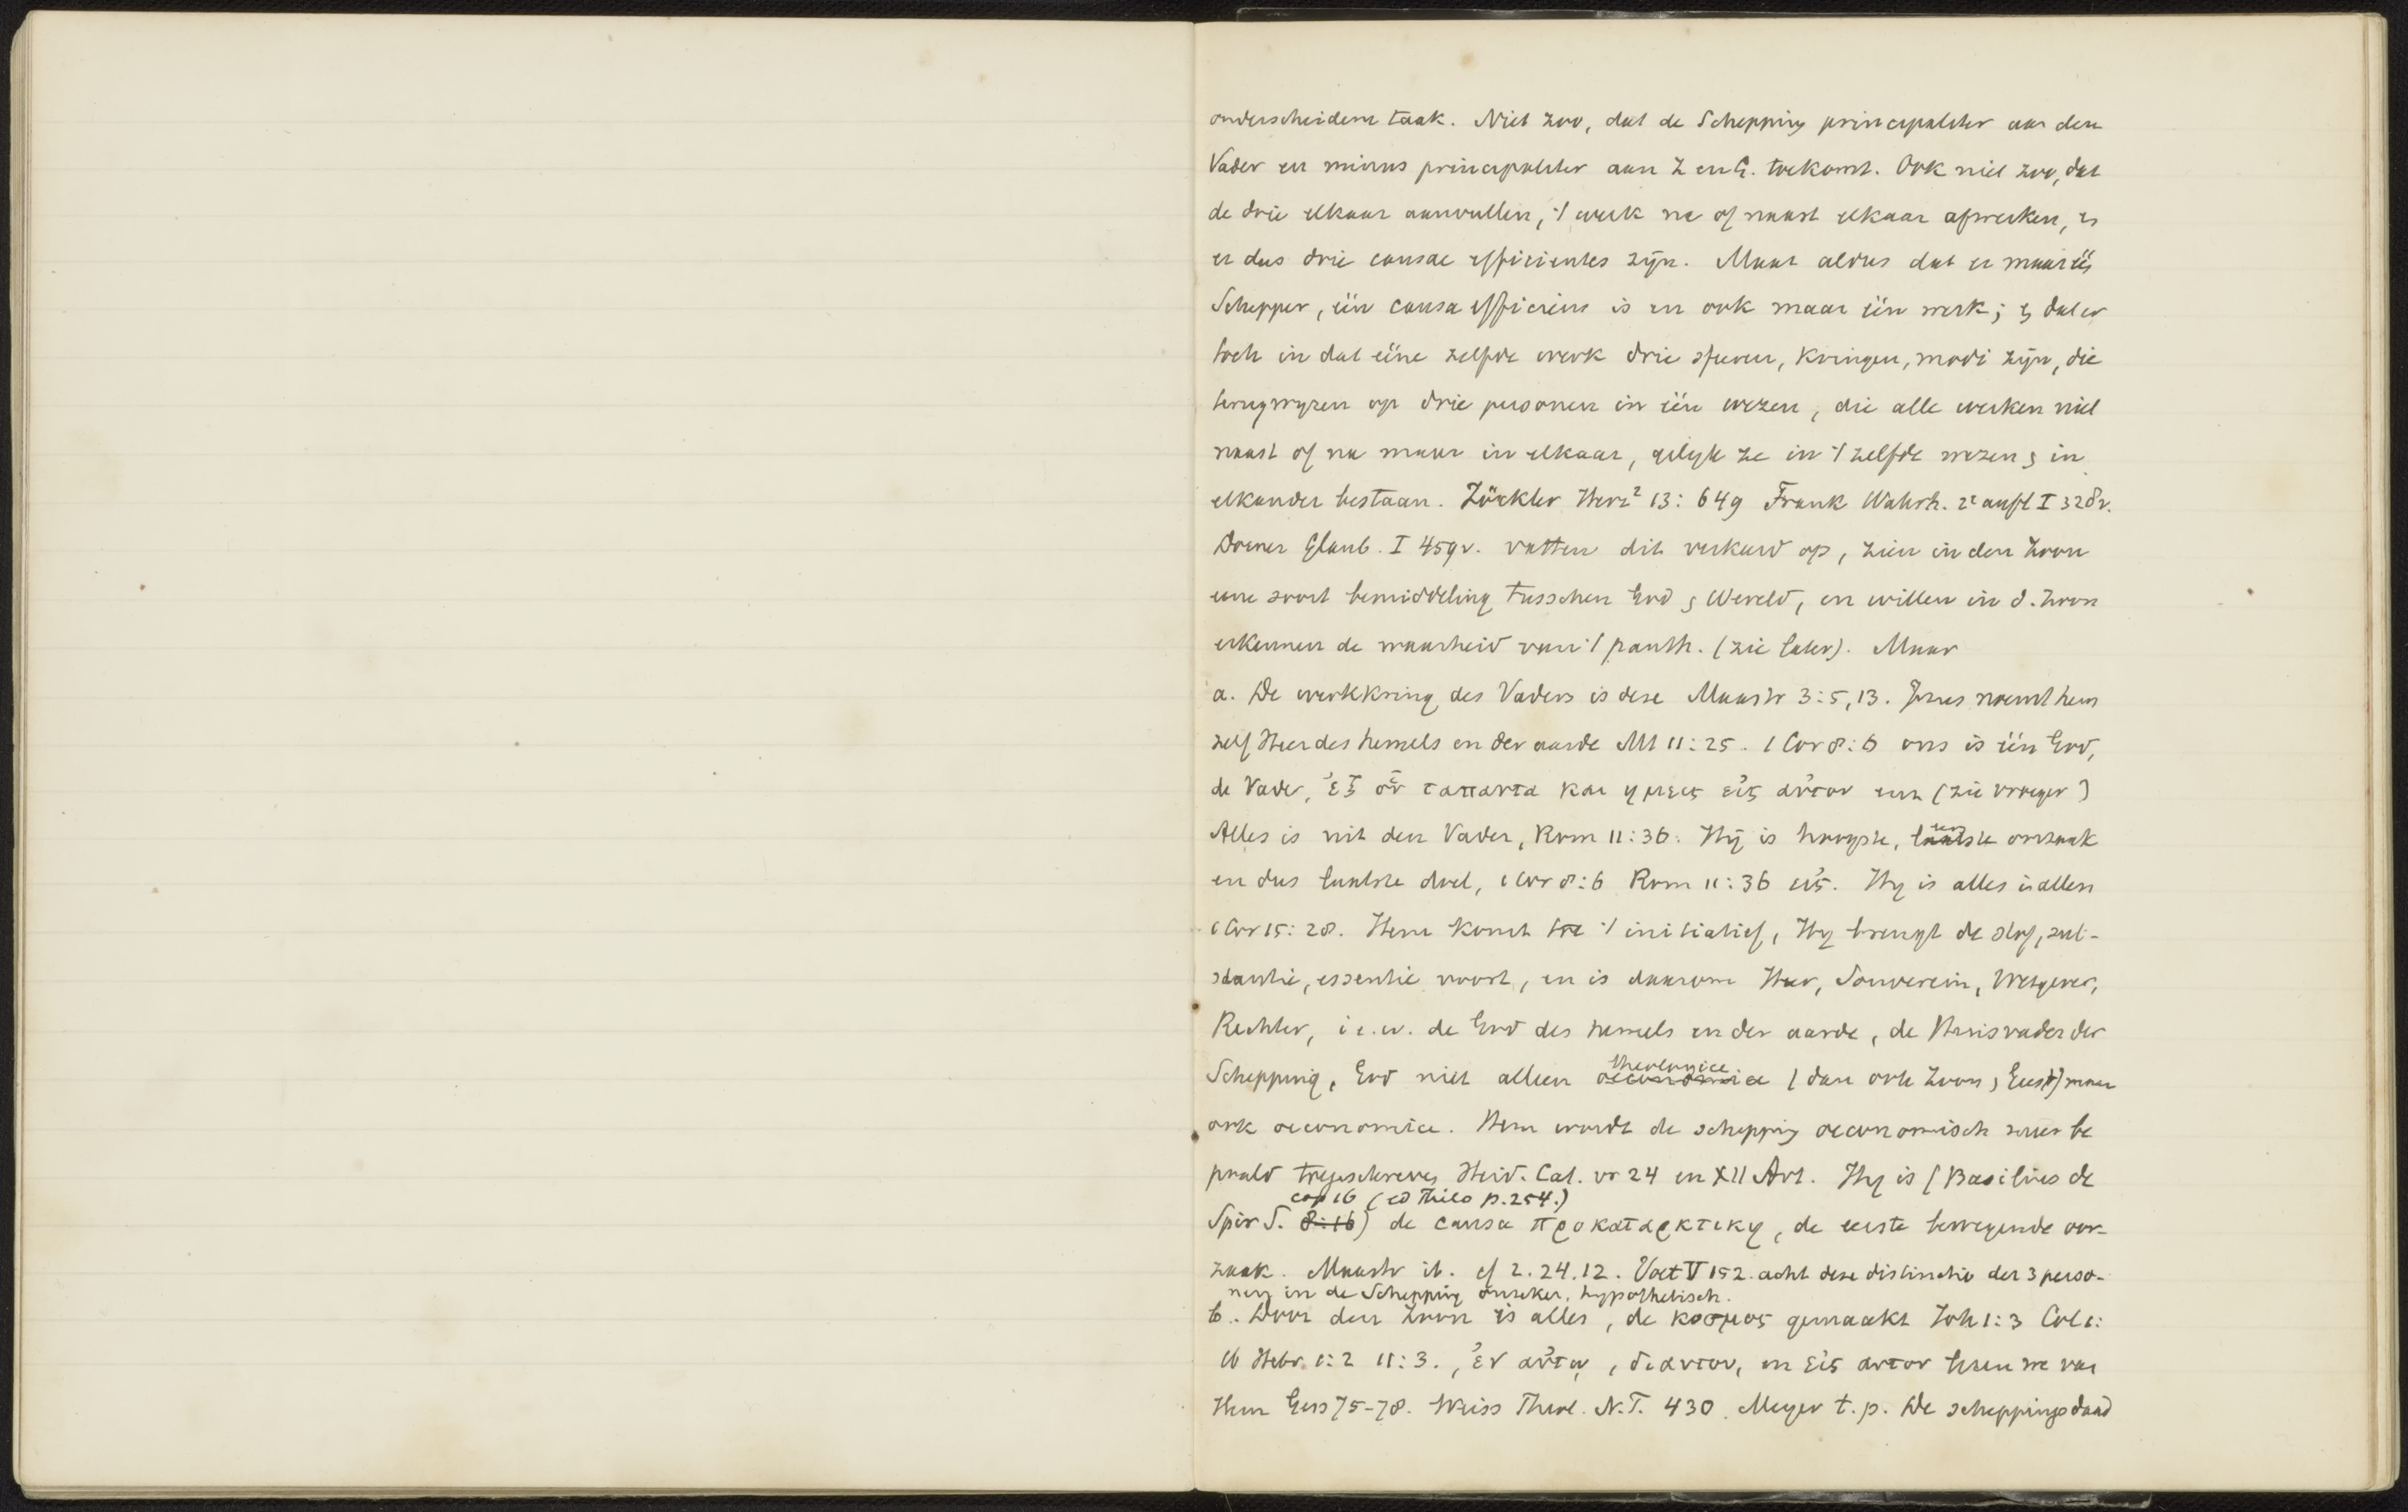 onderscheiden taak. Niet zoo, dat de Schepping principaliter aan den
Vader en minus principaliter aan Z en G. toekomt. Ook niet zoo, dat
de drie elkaar aanvullen, 't werk na of naast elkaar afwerken, en
er dus drie causae efficientes zijn. Maar aldus dat er maar één
Schepper, één causa efficiens is en ook maar één werk; en dat er
toch in dat ééne zelfde werk drie sferen, Kringen, modi zijn, die
terugwyzen op drie personen in één wezen, die alle werken niet
naast of na maar in elkaar, gelyk ze in 't zelfde wezen en in
elkander bestaan. Zöckler Herz² 13: 649 Frank Wahrh. 2e aufl I 328v.
Dorner Glaub. I 459v. vatten dit verkeerd op, zien in den Zoon
eene soort bemiddeling tusschen God en Wereld, en willen in d. Zoon
erkennen de waarheid van 't panth. (zie later). Maar
a. De werkkring des Vaders is deze Maastr 3:5,13. Jezus noemt hem
zelf Heer des hemels en der aarde Mt 11:25. 1 Cor 8:6 ons is één God,
de Vader, ἐξ οὗ τα παντα και ημεις εἰς αὐτον enz (zie vroeger)
Alles is uit den Vader, Rom 11:36. Hij is hoogste, laatste oorzaak
en dus laatste doel, 1 Cor 8:6 Rom 11:36 εἰς. Hy is alles in allen
1 Cor 15:28. Hem komt toe 't initiatief, Hy brengt de stof, sub-
stantie, essentie voort, en is daarom Heer, Souverein, Wetgever,
Rechter, i.e.w. de God des hemels en der aarde, de Huisvader der
Schepping, God niet alleen oeconomice theologice (dan ook Zoon en Geest) maar
ook oeconomice. Hem wordt de schepping oeconomisch be
paald toegeschreven Heid. Cat. vr 24 en XII Art. Hy is (Basilius de
Spir S. 8:16 cap 16 (ed Thilo p.254.)) de causa προκαταρκτικη, de eerste bewegende oor-
zaak. Maastr ib. cf 2.24.12. Voet V 152. acht deze distinctie der 3 perso-
nen in de Schepping onzeker, hypothetisch.
b. Door den Zoon is alles, de κοσμος gemaakt Joh 1:3 Col 1:
16 Hebr. 1:2 11:3., ἐν αὐτῳ, δι αυτου, en εἰς αυτον lezen we van
Hem Gess 75-78. Weiss Theol. N.T. 430. Meyer t.p. De scheppingsdaad